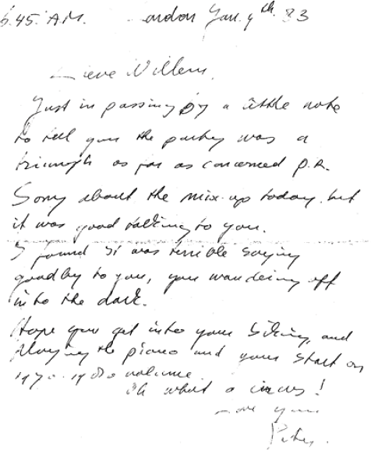 6.45. A.M. London Jan. 9th 83
Lieve Willem,
Just in passing by a little note
to tell you the party was a
triumph as far as concerned P.R.
Sorry about the mix-up today, but
it was good talking to you.
I found it was terrible saying
goodby to you, you wandering off
into the dark.
Hope you get into your biking, and
playing the piano and your start on
1970-1980 volume.
Oh what a circus!
Love you
Peter.